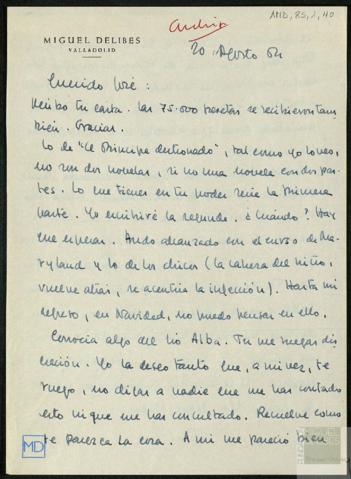 AMD, 85, 1, 40
MIGUEL DELIBES
VALLADOLID
20 Agosto 64
Querido José:
Recibo tu carta. Las 75.000 pesetas se recibieron tam
bién. Gracias.
Lo de "El Príncipe destronado", tal como yo lo veo,
no son dos novelas, si no una novela con dos par-
tes. Lo que tienes en tu poder sería la primera
parte. Yo escribiré la segunda. ¿Cuándo? Hay
que esperar. Ando abrumado con el curso de Ma-
ryland y lo de los chicos (la cabeza del niño,
vuelve atrás, se acentúa la infección). Hasta mi
regreso, en Navidad, no puedo pensar en ello.
Conocía algo del lío Alba. Tu me ruegas dis
creción. Yo la deseo tanto que, a mi vez, te
ruego, no digas a nadie que me has contado
esto ni que me has consultado. Resuelve como
te parezca la cosa. A mi me pareció bien
MD